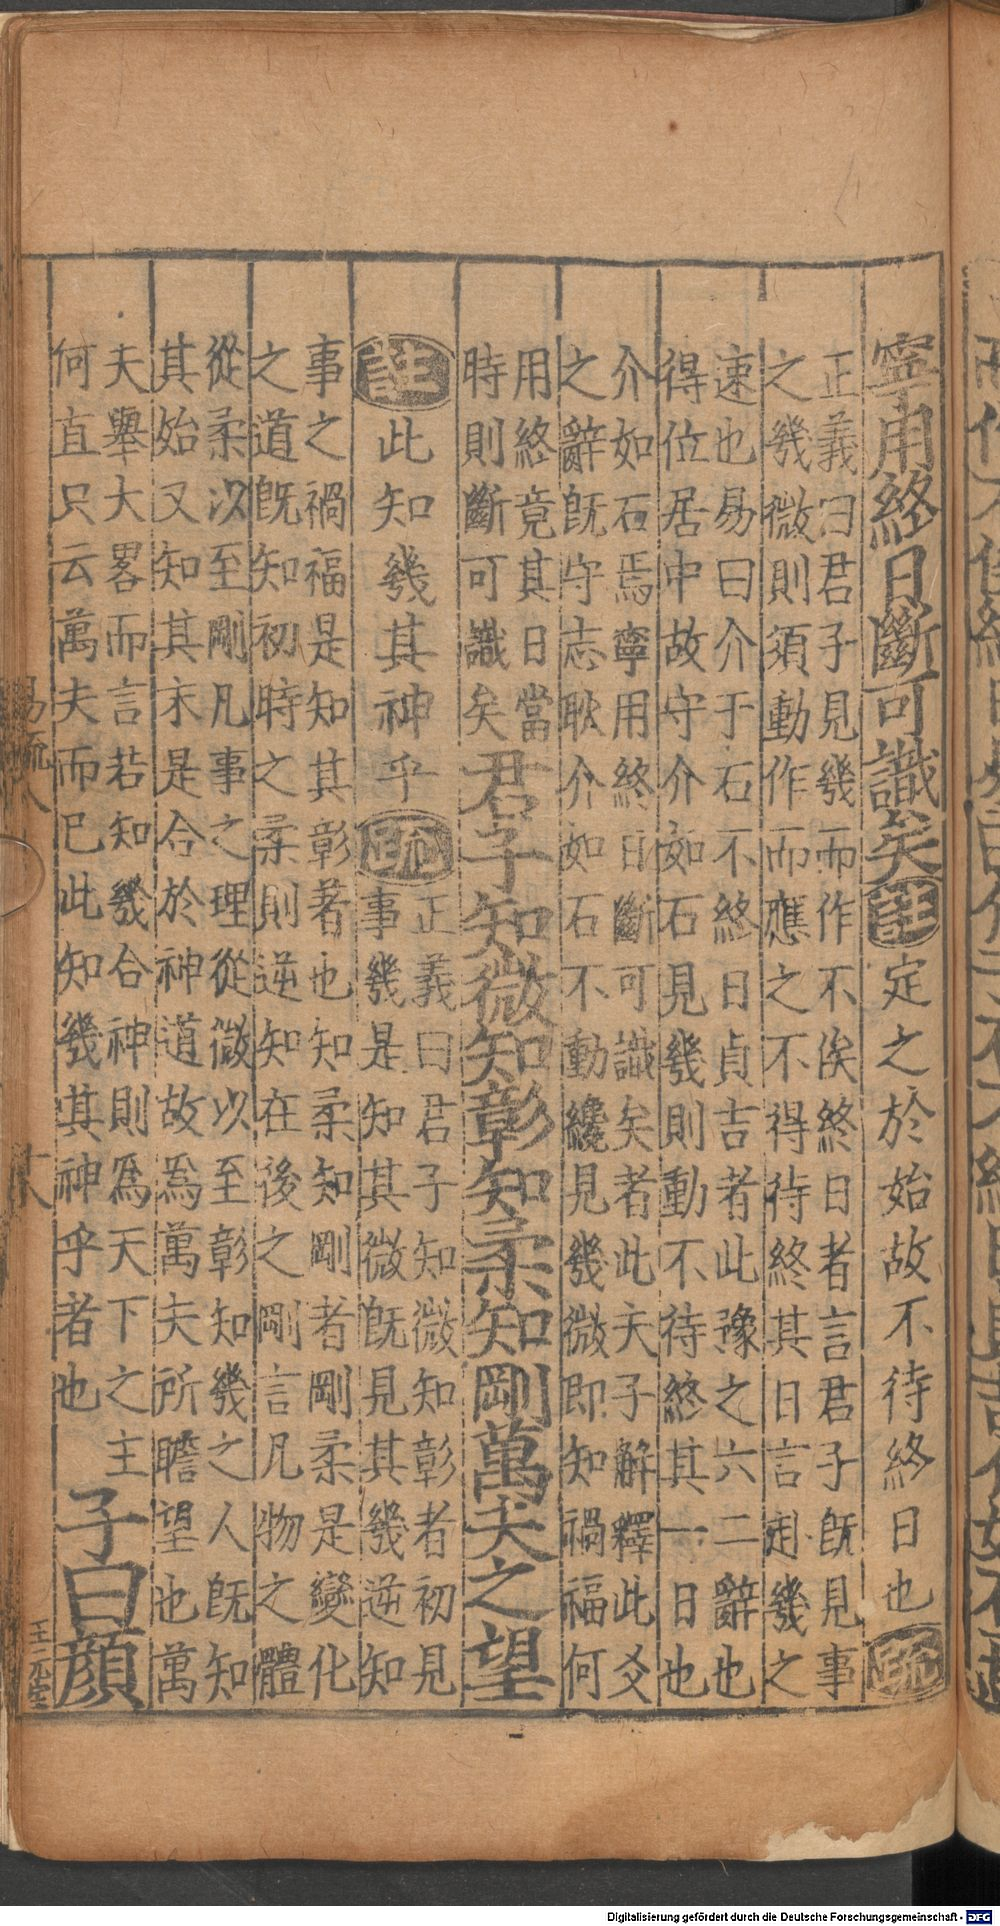 寧用終日斷可識矣註定之於始故不待終日也疏
正義曰君子見幾而作不俟終日者言君子旣見事
之幾微則須動作而應之不得待終其日言赴幾之
速也易曰介于石不終日貞吉者此豫之六二辭也
得位居中故守介如石見幾則動不待終其一日也
介如石焉寧用終日斷可識矣者此夫子解釋此爻
之辭旣守志耿介如石不動纔見幾微即知禍福何
用終竟其日當
時則斷可識矣
君子知微知彰知柔知剛萬夫之望
註此知幾其神乎疏
正義曰君子知微知彰者初見
事幾是知其微旣見其幾逆知
事之禍福是知其彰著也知柔知剛者剛柔是變化
之道旣知初時之柔則逆知在後之剛言凡物之體
從柔以至剛凡事之理從微以至彰知幾之人旣知
其始又知其末是合於神道故爲萬夫所瞻望也萬
夫舉大畧而言若知幾合神則爲天下之主
何直只云萬夫而已此知幾其神乎者也
子曰顏
易疏八
十八
王元宝
Digitalisierung gefördert durch die Deutsche Forschungsgemeinschaft - DFG